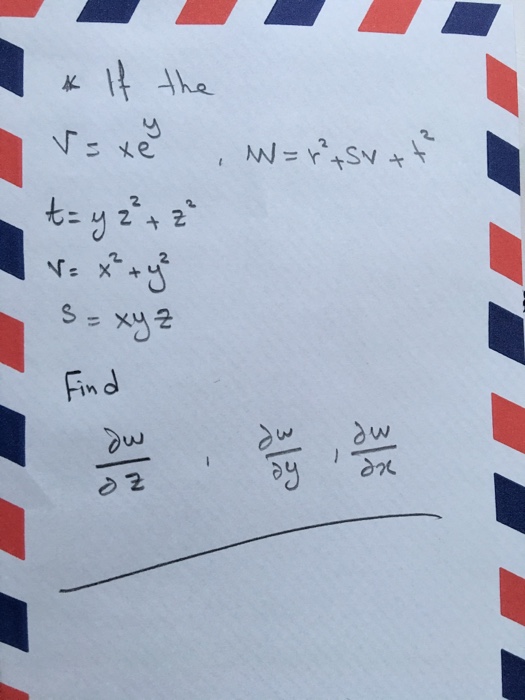 * If the
v = xe^y , W = r² + sv + t²
t = yz² + z²
r = x² + y²
s = xyz
Find
∂w/∂z , ∂w/∂y , ∂w/∂x